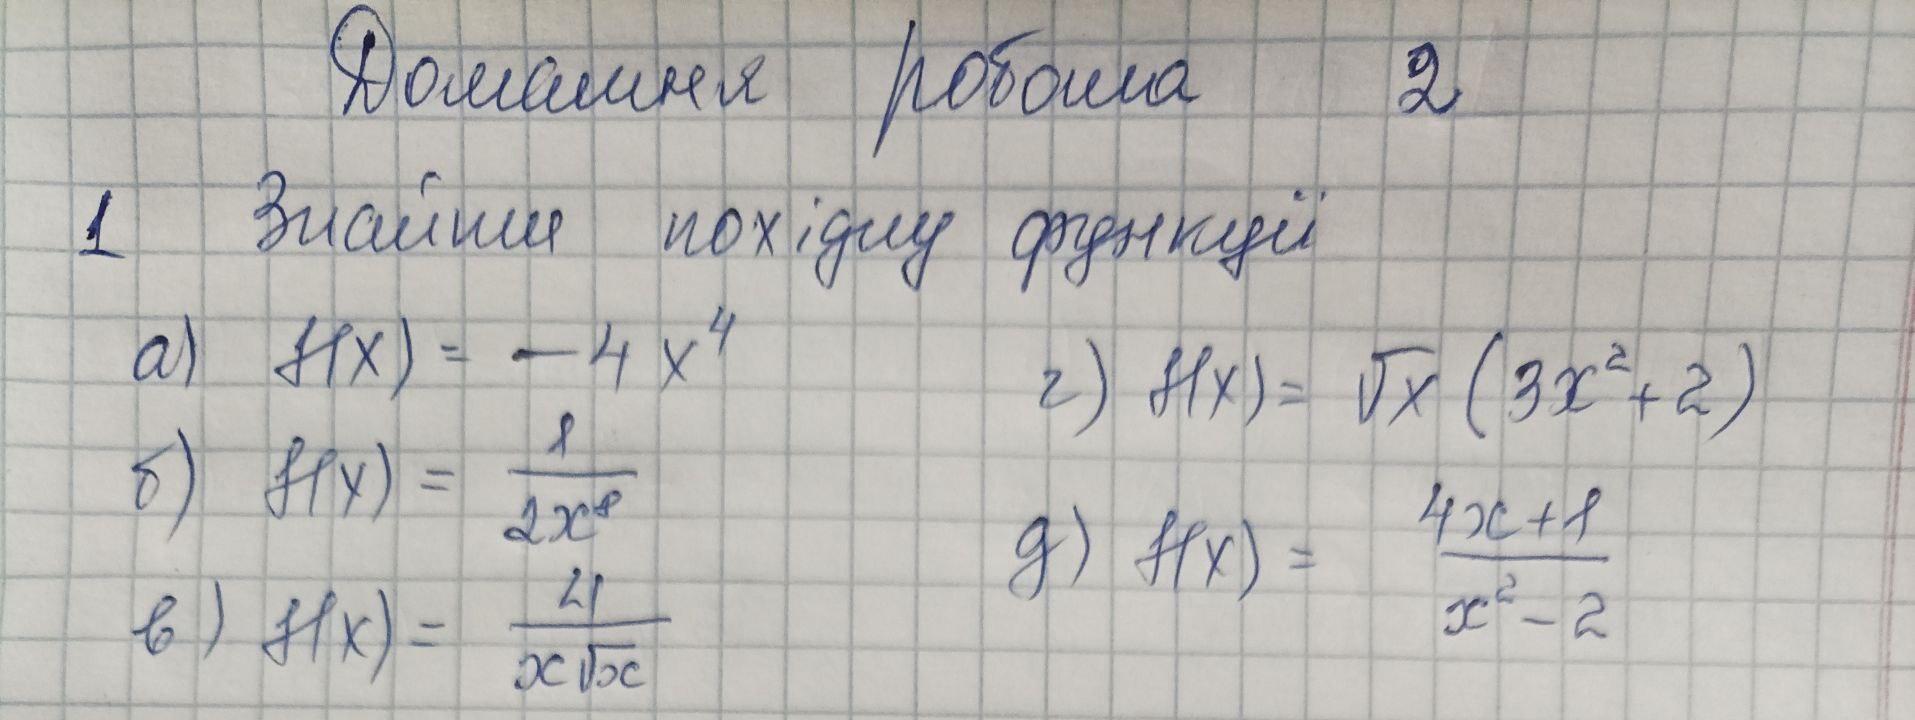 Домашня робота 2
1 Знайти похідну функції
а) f(x) = -4x⁴
б) f(x) = 1/(2x⁸)
в) f(x) = 4/(x√x)
г) f(x) = √x (3x² + 2)
д) f(x) = (4x+1)/(x² - 2)